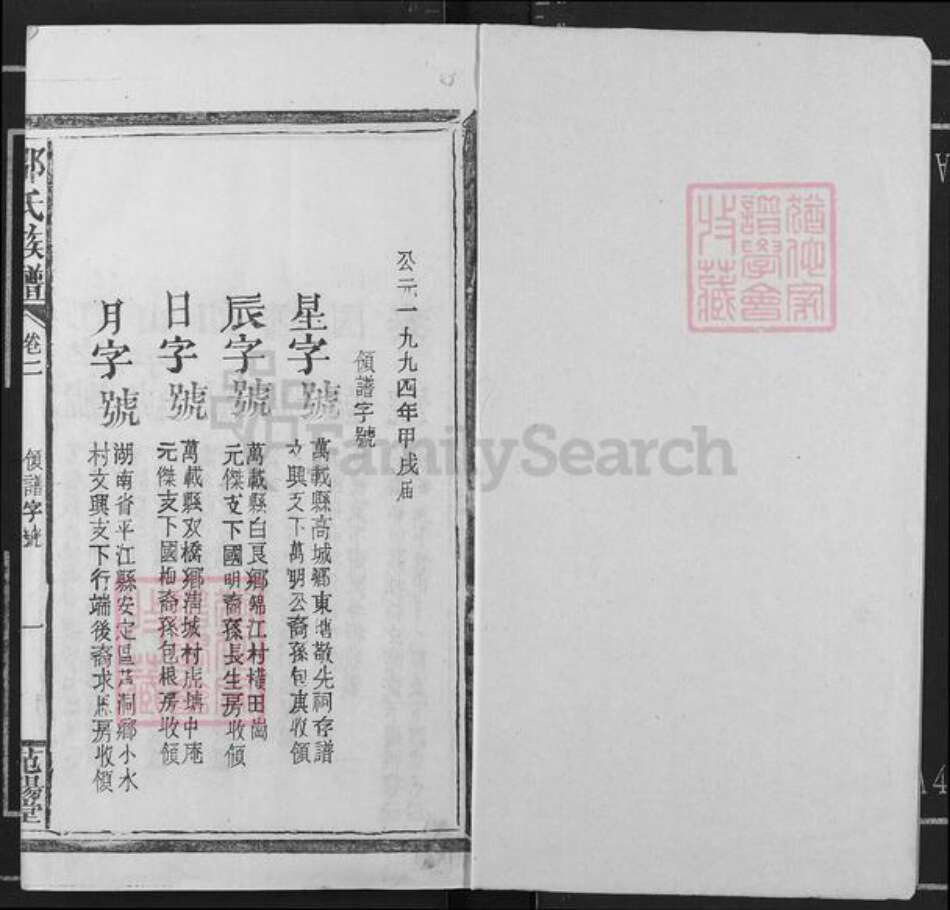 猶他家
譜學會
收藏
公元一九九四年甲戌届
領譜字號
星字號
萬載縣高城鄉東塘敬先祠存譜
文興支下萬明公裔孫包真收領
辰字號
萬載縣白良鄉錦江村橫田崗
元傑支下國明裔孫長生房收領
日字號
萬載縣双橋鄉清城村虎塘中庵
元傑支下國梅裔孫包根房收領
月字號
湖南省平江縣安定區芦洞鄉小水
村文興支下行端後裔求房收領
氏族譜
卷二
領譜字號
一
范陽堂
FamilySearch